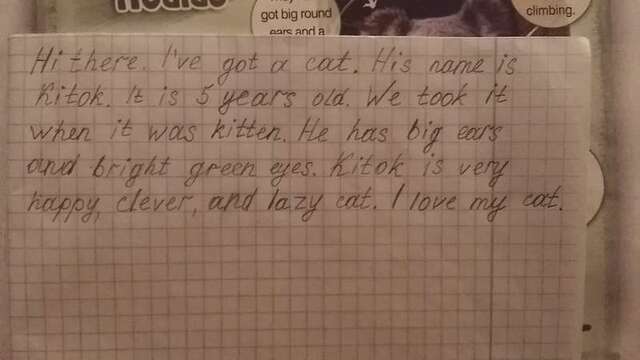 Hi there. I've got a cat. His name is
Kitok. It is 5 years old. We took it
when it was kitten. He has big ears
and bright green eyes. Kitok is very
happy, clever, and lazy cat. I love my cat.
got big round
ears and a
climbing.